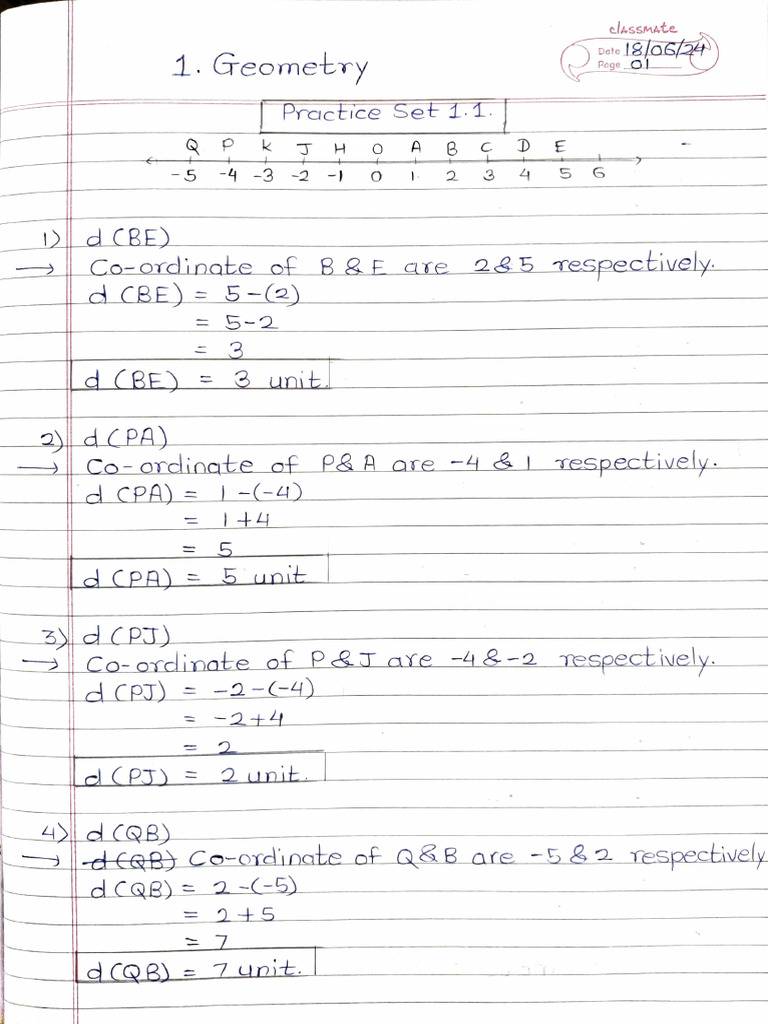 classmate
Date 18/06/24
Page 01
1. Geometry
Practice Set 1.1.
Q P K J H O A B C D E
-5 -4 -3 -2 -1 0 1 2 3 4 5 6
1) d(BE)
→ Co-ordinate of B & E are 2 & 5 respectively.
d(BE) = 5-(2)
= 5-2
= 3
d(BE) = 3 unit.
2) d(PA)
→ Co-ordinate of P & A are -4 & 1 respectively.
d(PA) = 1-(-4)
= 1+4
= 5
d(PA) = 5 unit
3) d(PJ)
→ Co-ordinate of P & J are -4 & -2 respectively.
d(PJ) = -2-(-4)
= -2+4
= 2
d(PJ) = 2 unit.
4) d(QB)
→ d(QB) Co-ordinate of Q & B are -5 & 2 respectively
d(QB) = 2-(-5)
= 2+5
= 7
d(QB) = 7 unit.